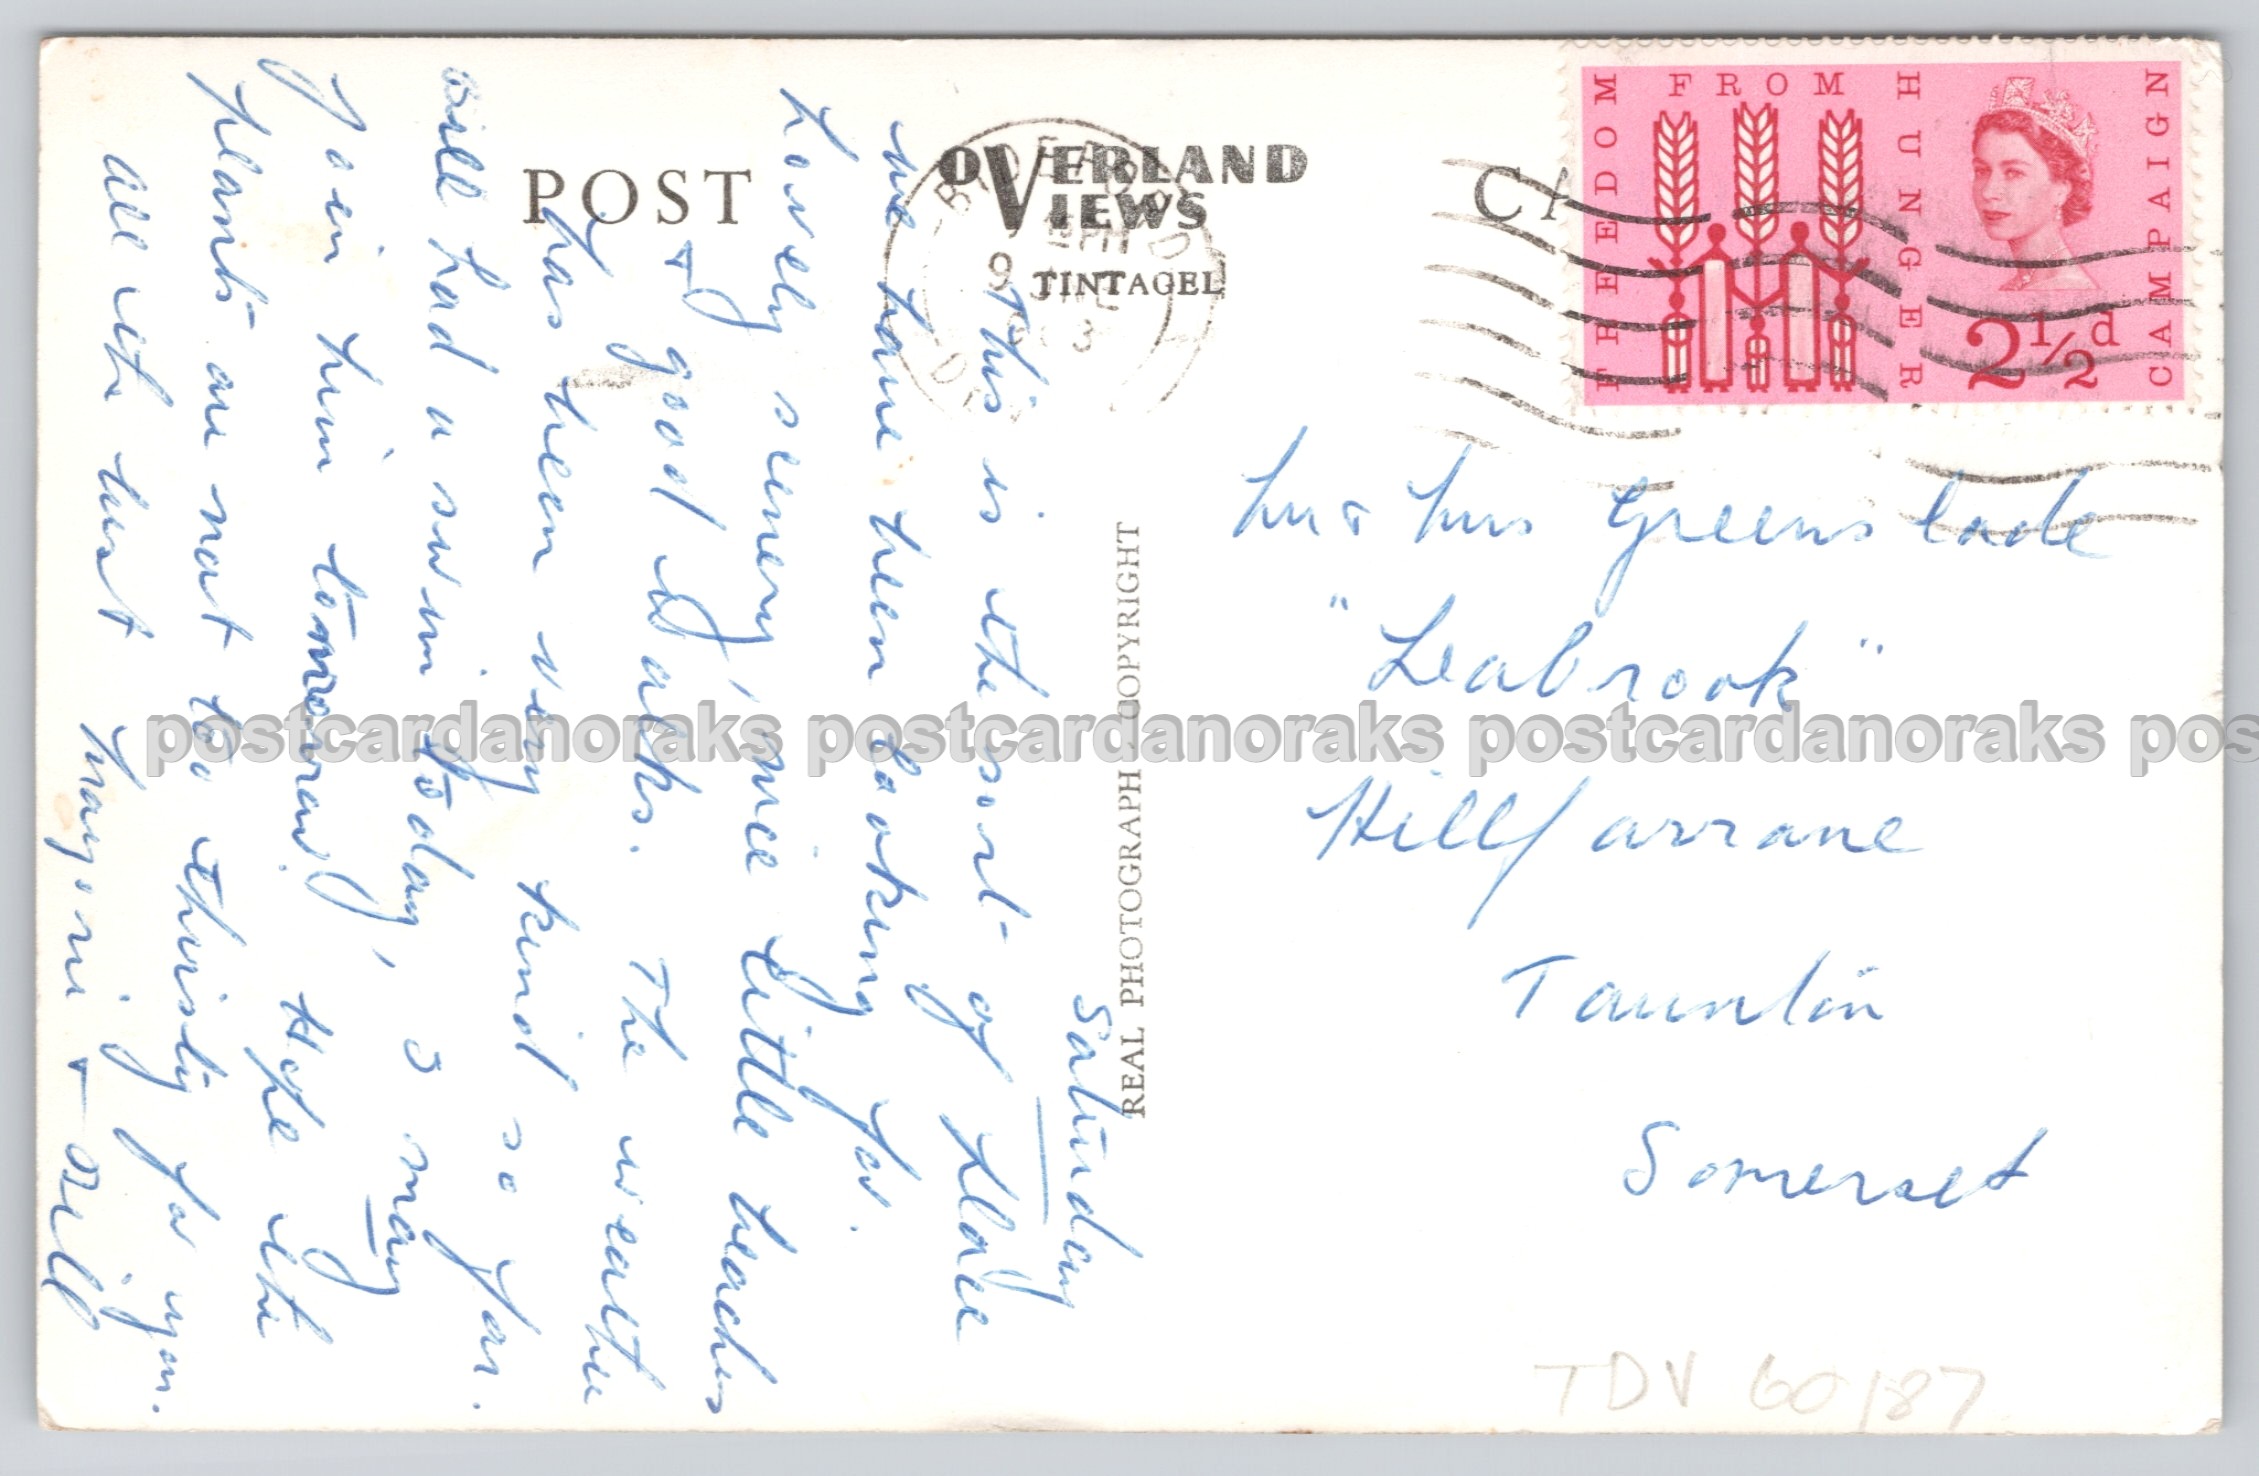 POST CA
OVERLAND
VIEWS
TINTAGEL
BIDEFORD
9
DEVON
FREEDOM FROM HUNGER CAMPAIGN
2½d
REAL PHOTOGRAPH COPYRIGHT
Saturday
This is the sort of place
we have been looking for.
Lovely scenery, nice little beaches
& good walks. The weather
has been very kind so far.
Bill had a swim today, I may
join him tomorrow. Hope the
plants are not too thirsty for you.
All the best
& Bill
Mr & Mrs Greenslade
"Leabrook"
Hillfarrane
Taunton
Somerset
TDV 60/87
postcardanoraks postcardanoraks postcardanoraks pos